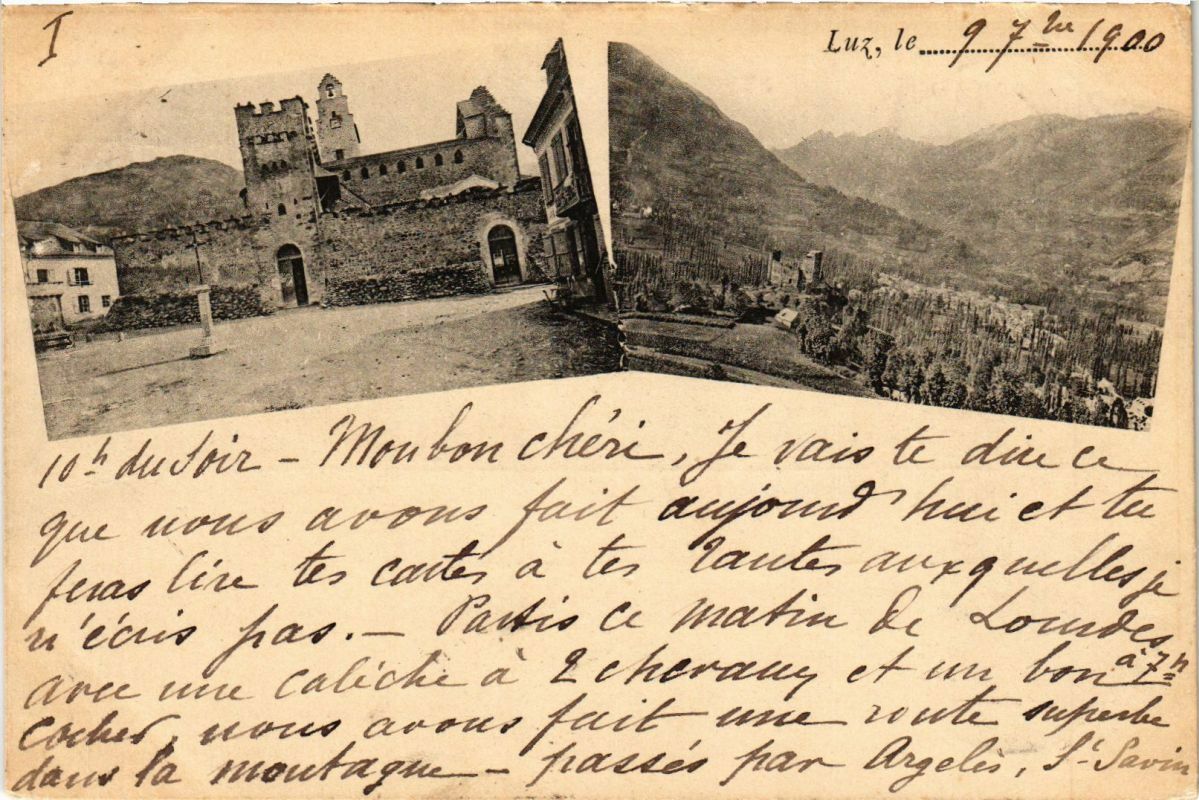 I
Luz, le 9 7bre 1900
10h du soir - Mon bon chéri, Je vais te dire ce
que nous avons fait aujourd'hui et tu
feras lire tes cartes à tes Tantes auxquelles je
n'écris pas. - Partis ce matin de Lourdes
à 7h
avec une calèche à 2 chevaux et un bon
cocher, nous avons fait une route superbe
dans la montagne - passés par Argelès, St-Savin